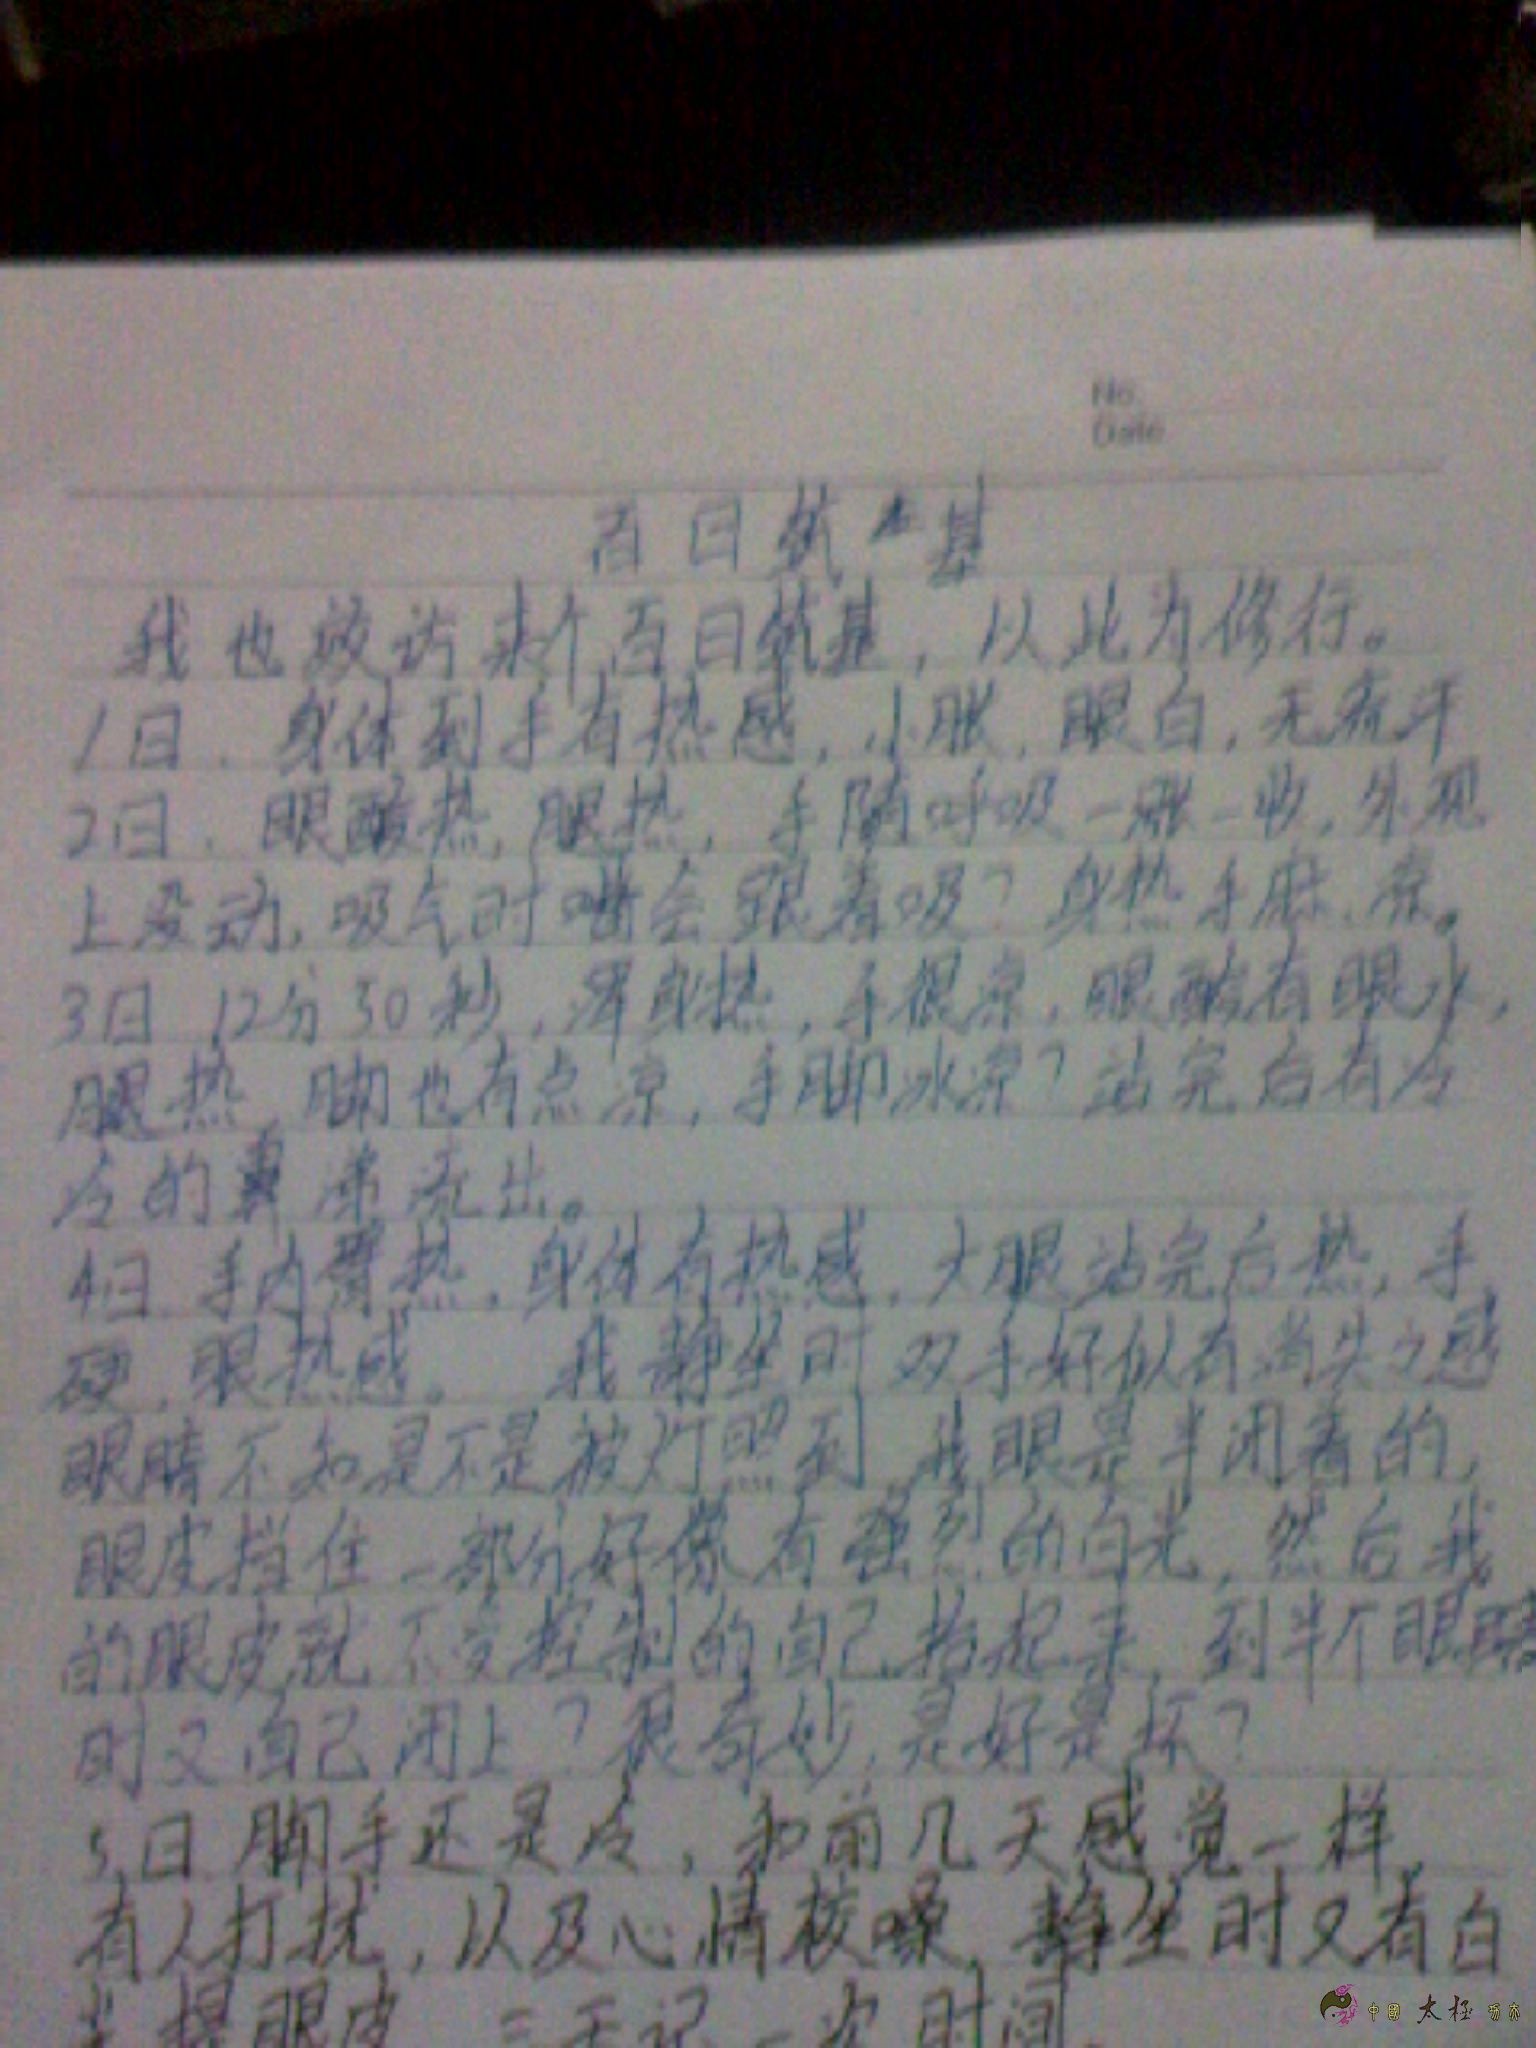 No.
Date
百日筑基
我也效访来个百日筑基，以此为修行。
1日．身体到手有热感，小胀，眼白，无流汗
2日．眼酸热，腿热，手随呼吸一胀一收，外观
上没动，吸气时嘴会跟着吸？身热手麻、凉。
3日 12分50秒，浑身热，手很凉，眼酸有眼水，
腿热，脚也有点凉，手脚冰凉？站完后有冷
冷的鼻涕流出。
4日 手内臂热，身体有热感，大腿站完后热，手
硬，眼热感。 我静坐时双手好似有消失之感
眼睛不知是不是被灯照到，我眼是半闭着的，
眼皮挡住一部分好像有强烈的白光，然后我
的眼皮就不受控制的自己抬起来，到半个眼睛
时又自己闭上？很奇妙，是好是坏？
5日 脚手还是冷，和前几天感觉一样，
有人打扰，以及心情，静坐时又有白
光提眼皮 三天记一次时间．
中國太極